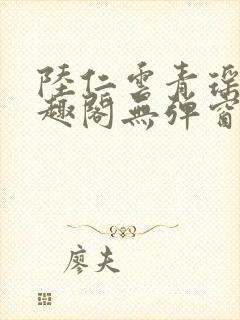 陸仁雲青瑤
趣閣無彈窗
廖夫